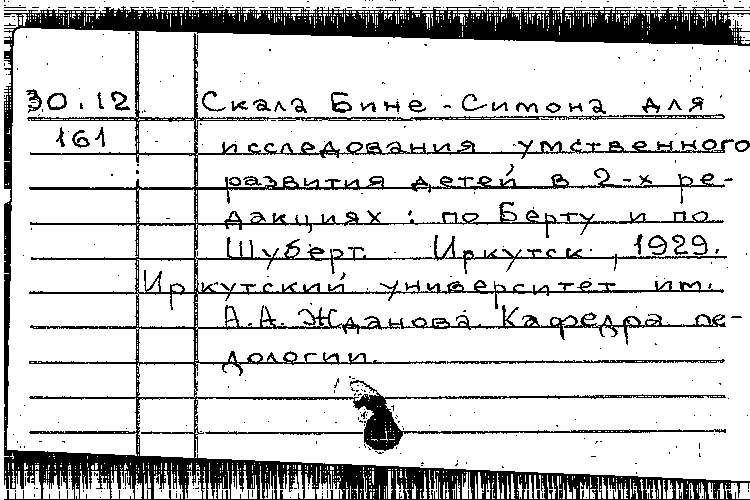 30.12 Скала Бине-Симона для
161 исследования умственного
развития детей в 2-х ре-
дакциях: по Берту и по
Шуберт. Иркутск, 1929.
Иркутский университет им.
А.А. Жданова. Кафедра пе-
дологии.